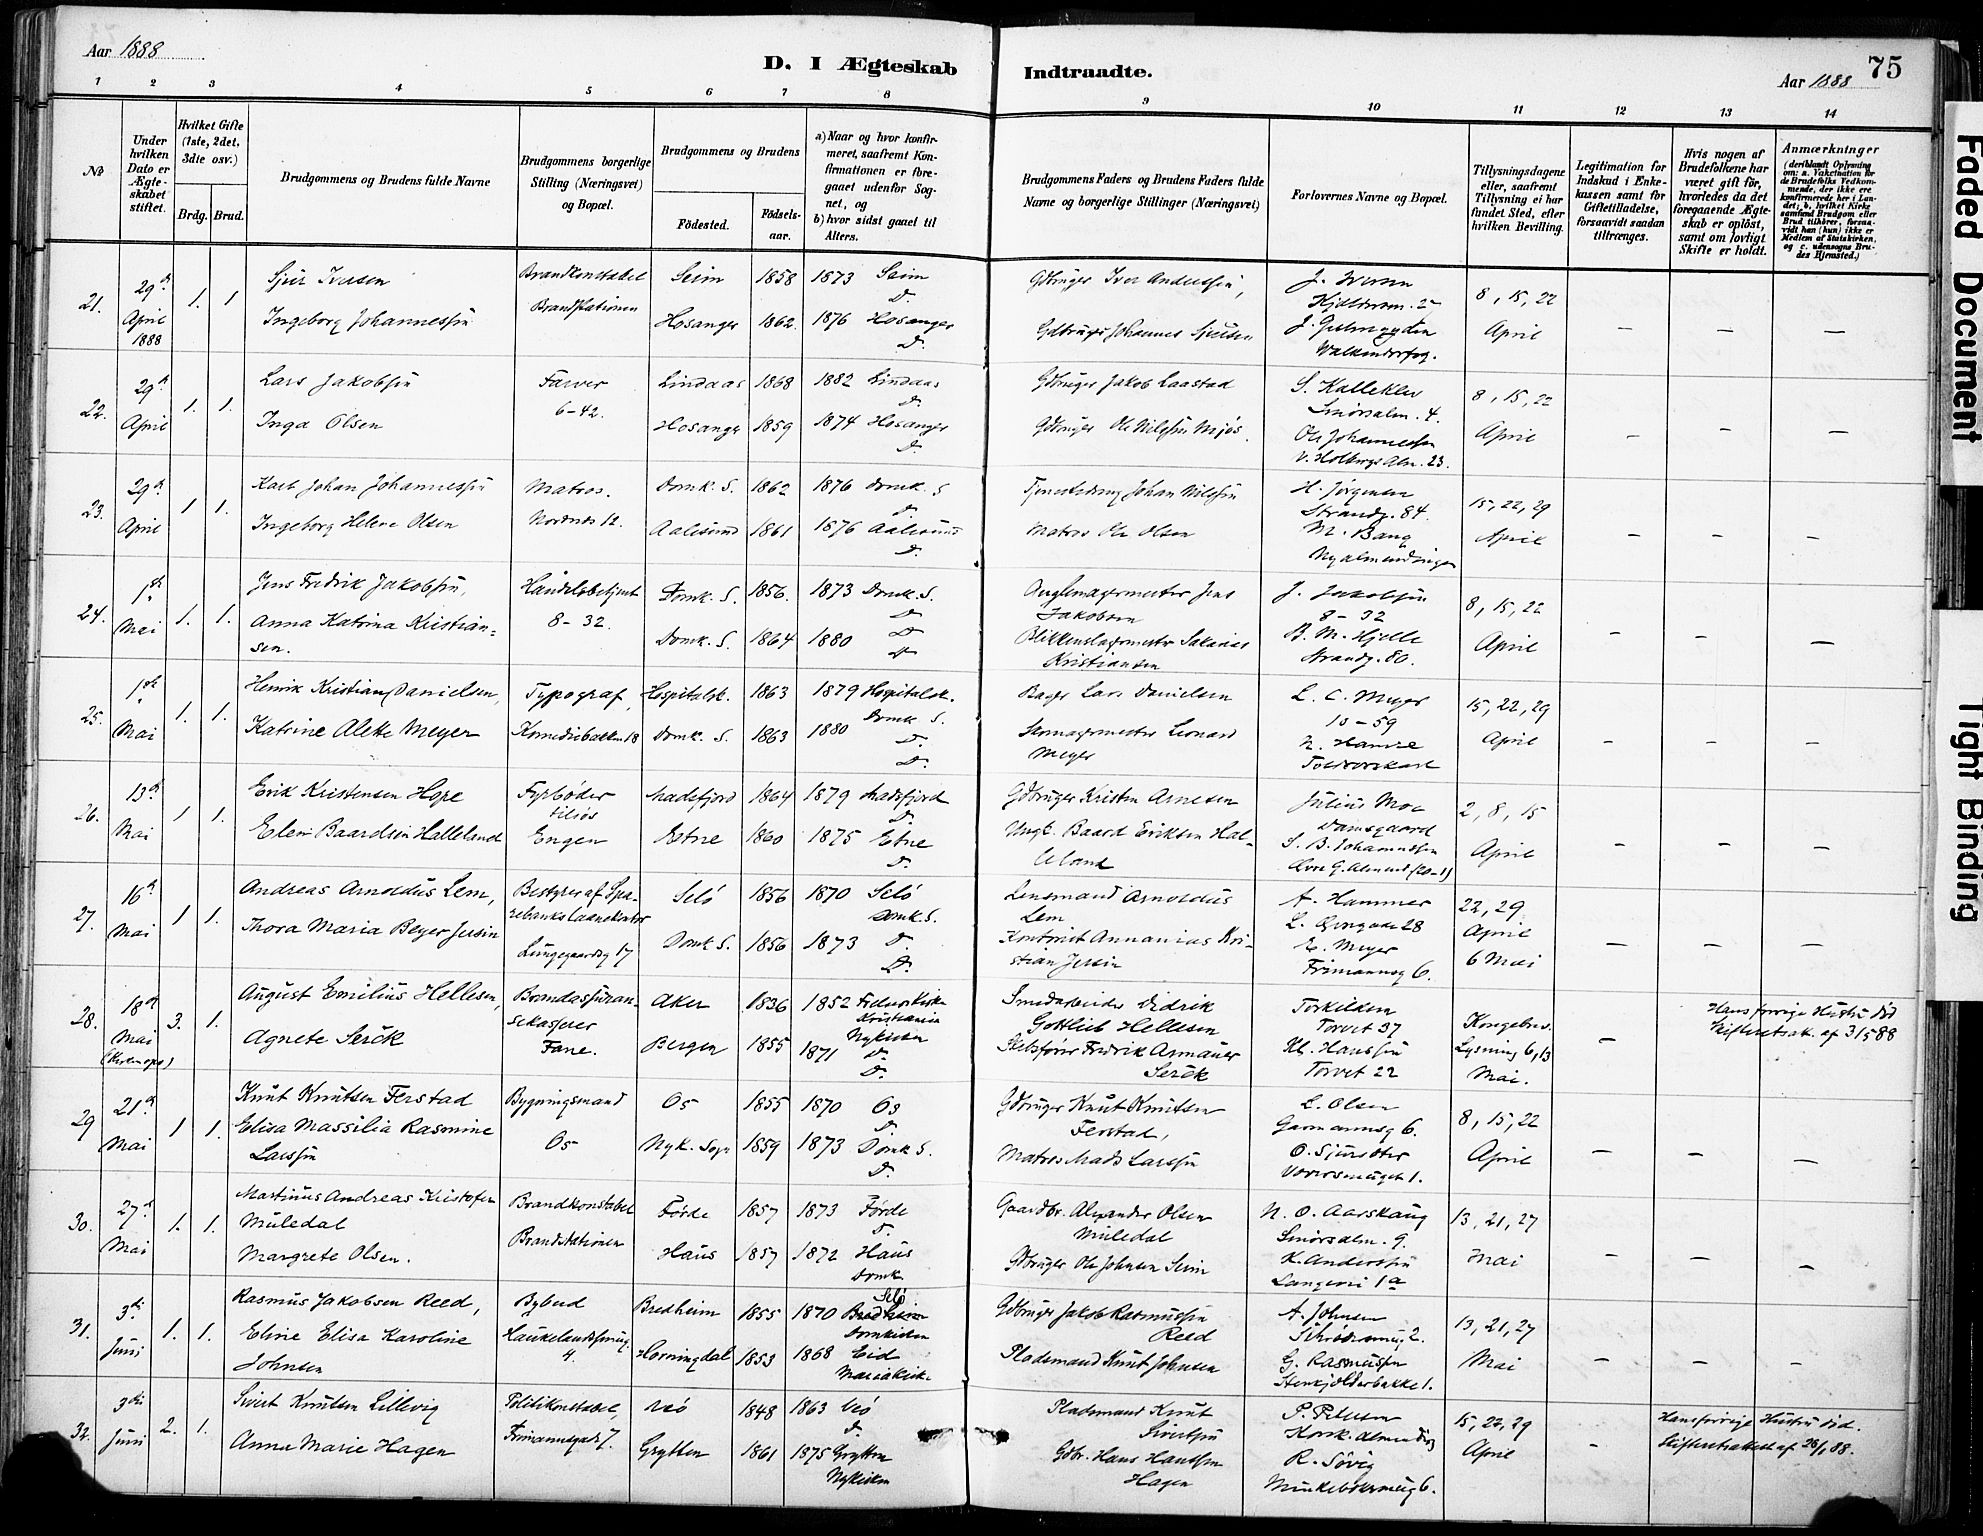 Aar 1888
D. I Ægteskab
Indtraadte.
75
Aar 1888
1 2 3 4 5 6 7 8 9 10 11 12 13 14
No
Under hvilken Dato er Ægteskabet stiftet.
Hvilket Gifte (1ste, 2det, 3die osv.)
Brdg. Brud.
Brudgommens og Brudens fulde Navne
Brudgommens borgerlige Stilling (Næringsvei) og Bopæl.
Brudgommens og Brudens
Fødested.
Fødselsaar.
a) Naar og hvor konfirmeret, saafremt Konfirmationen er foregaaet udenfor Sognet, og
b) hvor sidst gaaet til Alters.
Brudgommens Faders og Brudens Faders fulde Navne og borgerlige Stillinger (Næringsvei)
Forlovernes Navne og Bopæl.
Tillysningsdagene eller, saafremt Tillysning ei har fundet Sted, efter hvilken Bevilling.
Legitimation for Indskud i Enkekassen samt for Giftetilladelse, forsaavidt saadan tiltrænges.
Hvis nogen af Brudefolkene har været gift før, hvorledes da det foregaaende Ægteskab er opløst, samt om lovligt Skifte er holdt.
Anmærkninger
(deriblandt Oplysning om: a. Vakcination for de Brudefolks Vedkommende, der ikke ere konfirmerede her i Landet; b. hvilket Kirkesamfund Brudgom eller Brud tilhører, forsaavidt han (hun) ikke er Medlem af Statskirken, og c. udensogns Brudes Hjemsted.)
21. 29de April 1888 1. 1
Sjur Iversen Brandkonstabel Seim 1858 1873 Seim D. Gdbruger Iver Anderssen, J. Iversen 8, 15, 22
Ingeborg Johannessen Brandstationen Hosanger 1862. 1876 Hosanger D. Gdbruger Johannes Sjursen April – – –
22. 29de April 1. 1.
Lars Jakobsen Farver Lindaas 1868 1882 Lindaas D. Gdbruger Jakob Laastad S. Kalleklev Smørsalm. 4. 8, 15, 22
Inga Olsen 6-42. Hosanger 1859 1874 Hosanger D. Gdbruger Ole Nilssen Mjøs. Ole Johannessen v. Holbergs Alm. 23. April – – –
23. 29de April 1 1.
Karl Johan Johannessen Matros. Domk. S. 1862 1876 Domk. S D. Johan Nilssen H. Jørgensen Strandg. 84. 15, 22, 29
Ingeborg Helene Olsen Nordnes 12. Aalesund 1861 1876 Aalesund D. Matros Ole Olsen M. Bang Nyalmendingen April – – –
24. 1ste Mai 1. 1.
Jens Fredrik Jakobsen, Handelsbetjent Domk. S. 1856. 1873 Domk. S. D. Jens Jakobsen J. Jakobsen 8-32 8, 15, 22
Anna Katrina Kristiansen. 8-32. Domk. S. 1864 1880 D. D. Blikkenslagermester Sakarias Kristiansen B. M. Hjelle Strandg. 80. April – – –
25. 1ste Mai 1. 1.
Henrik Kristian Danielsen, Typograf, Hospitalsk. 1863 1879 Hospitalsk. Domk. S. Bager Lars Danielsen L. C. Meyer 10-59 15, 22, 29
Katrine Aletke Meyer Komediebakken 18 Domk. S. 1863 1880 D. D. Skomagermester Leonard Meyer April – – –
26. 13de Mai 1 1.
Erik Kristensen Hope Fyrbøder tilsøs Madsfjord 1864 1879 Madsfjord D. Gdbruger Kristen Arnesen Julius Moe Damsgaard 2, 8, 15
Eleni Baardsen Halleland Engen Etne 1860 1875 Etne D. Ungk. Baard Eriksen Halleland S. B. Johannessen April – – –
27. 16de Mai 1 1.
Andreas Arnoldus Lem, Bestyrer af Sparebanks Laanekontor Selø 1856 1870 Selø Domk. S. Lensmand Arnoldus Lem A. Hammer 22, 29 April
Thora Maria Beyer Jersin Lungegaardsg 17 Domk S. 1856 1873 D. D. Kontorist Annanias Kristian Jersin E. Meyer Frimannsg 6. 6 Mai – – –
28. 18de Mai 3. 1.
August Emilius Hellesen, Brandassurансekasserer Aker 1836 1852 Kristiania Nykirken Smedarbeider Didrik Gottlieb Hellesen Torkildsen Torvet 37 Kongebrev. Hans forrige Hustru død
Agnete Serck Fane. Bergen 1855 1871 D. D. Skibsfører Fredrik Armauer Serck Kl. Hanssen Torvet 22 Lysning 6, 13 Mai. – Skifteretsat. af 31588
29 21de Mai 1 1.
Knut Knutsen Ferstad Bygningsmand Os 1855 1870 Os D. Gdbruger Knut Knutsen Ferstad, L. Olsen 8, 15, 22
Elisa Massilia Rasmine Larssen Os Nyk. Sogn 1859 1873 Domk S. D. Matros Mads Larssen April – – –
30. 27de Mai 1. 1.
Martinus Andreas Kristofer Muledal Brandkonstabel Førde 1857 1873 Førde D. Gaardbr. Alexander Olsen Muledal N. O. Aarskaug Smørsalm. 9. 13, 21, 27
Margrete Olsen. Brandstationen Haus 1857 1872 Haus Domk. Gdbruger Ole Johnsen Seim K. Anderssen Langevei 1a Mai – – –
31. 3die Juni 1. 1.
Rasmus Jakobsen Reed, Bybud Bredheim 1855 1870 Selø Bredheim Domkirken Gdbruger Jakob Rasmussen Reed A. Johnsen 13, 21, 27
Eline Elisa Karoline Johnsen 4. Horningdal 1853 1868 Eid Mariakirke. Pladsmand Knut Johnsen G. Rasmussen Stenkjelderbakke 1. Mai – – –
32. 3die Juni 2. 1.
Sivert Knutsen Lillevig Politikonstabel, Veø 1848 1863 Veø D. Pladsmand Knut Sivertsen P. Petersen Korsk. almending 15, 22, 29 Hans forrige Hustru død.
Anna Marie Hagen Frimannsgade 7. Grytten 1861 1875 Grytten Nykirken Gdbr. Hans Hanssen Hagen R. Søvig April – Skifteretsattest af 26/1 88.
Faded Document
Tight Binding